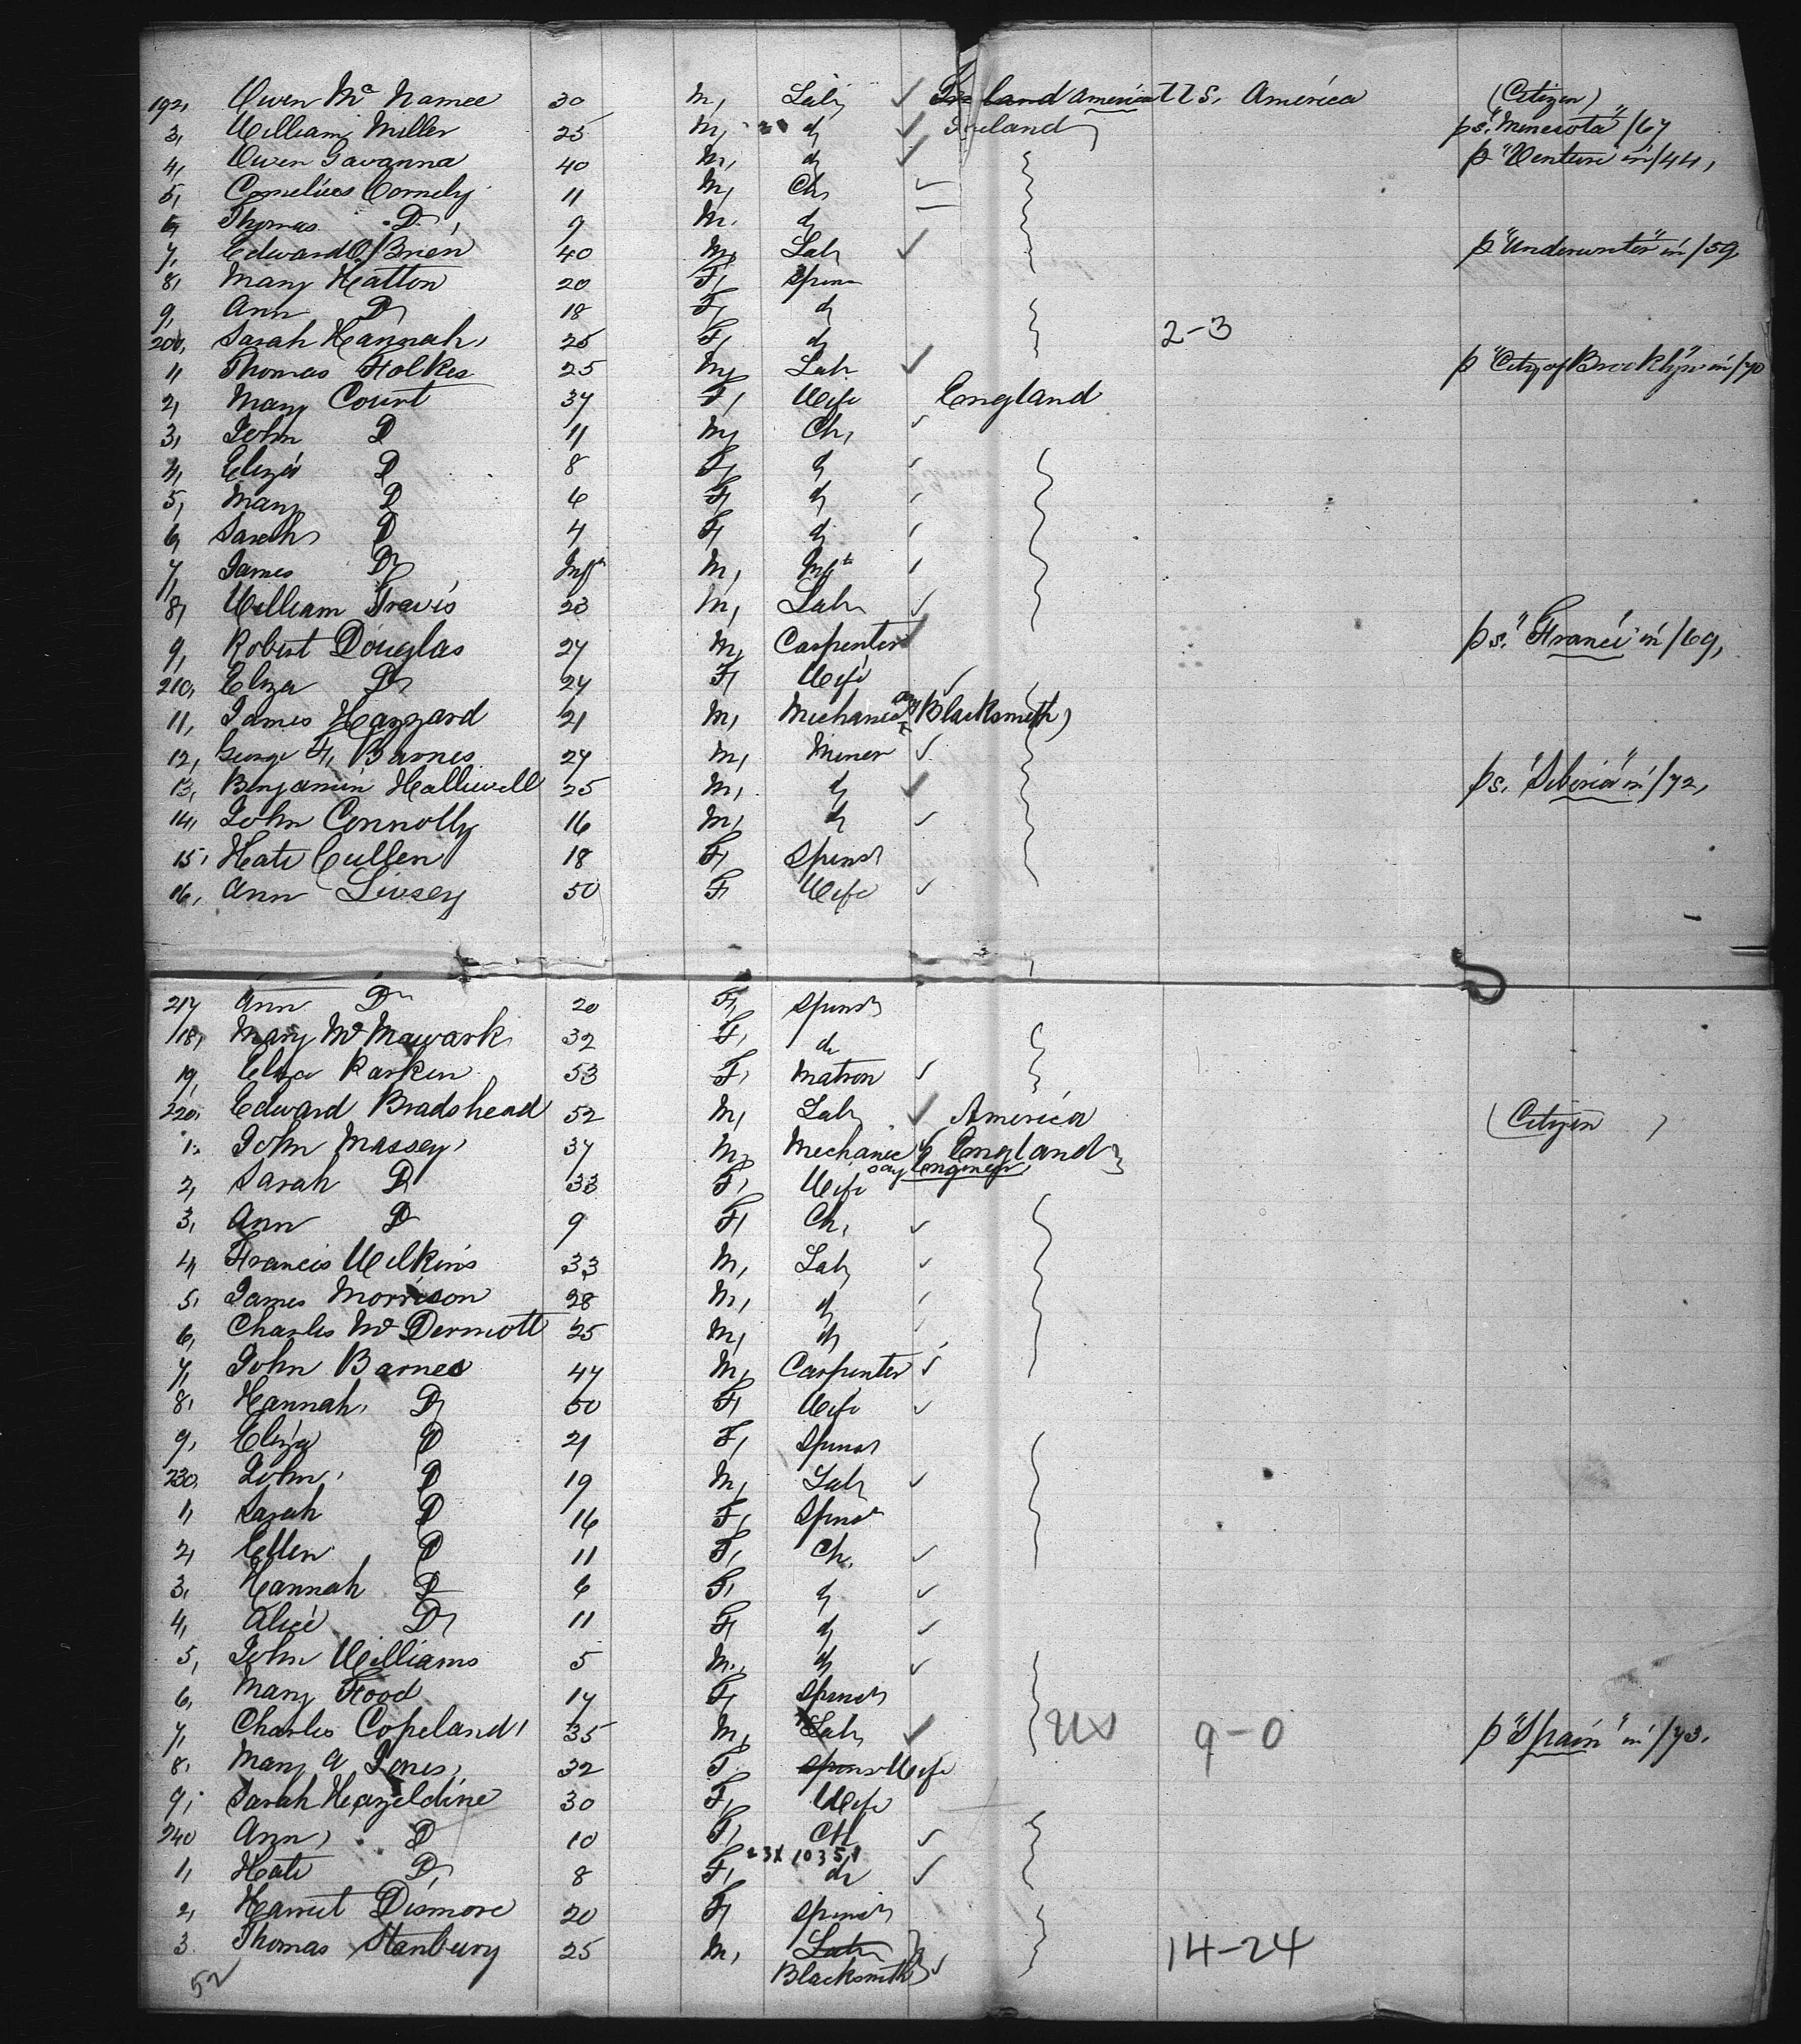 192, Owen Mc Namee 30 M, Labr Ireland America U S. America (Citizen)
3, William Miller 25 M, do Ireland ps. "Minesota" /67
4, Owen Gavanna 40 M, do p "Venture in /44,
5, Cornelius Comely 11 M, Ch,
6, Thomas Do, 9 M. do
7, Edward O'Brien 40 M, Labr p "Underwriter" in /59
8, Mary Hatton 20 F, Spinr
9, Ann Do 18 F, do
200, Sarah Hannah, 25 F, do 2-3
1, Thomas Folkes 25 M, Labr p "City of Brooklyn" in /70
2, Mary Court 37 F, Wife England
3, John Do 11 M, Ch,
4, Eliza Do 8 F, do
5, Mary Do 6 F, do
6, Sarah Do 4 F, do
7, James Do Inft M, Inft
8, William Travis 23 M, Labr
9, Robert Douglas 27 M, Carpenter ps. "France" in /69,
210, Eliza Do 27 F, Wife
11, James Hazzard 21 M, Mechanic say (Blacksmith)
12, George F, Barnes 27 M, Miner
13, Benjamin Halliwell 25 M, do ps. "Siberia" in /72,
14, John Connolly 16 M, do
15, Kate Cullen 18 F, Spinsr
16, Ann Livsey 50 F, Wife
217 Ann Do 20 F, Spinsr
/18, Mary Mc Mawark 32 F, do
19, Eliza Parken 53 F, Matron
220, Edward Bradshead 52 M, Labr America (Citizen)
1, John Massey, 37 M, Mechanic England
say Engineer
2, Sarah Do 33 F, Wife
3, Ann Do 9 F, Ch,
4, Francis Wilkins 33 M, Labr
5, James Morrison 28 M, do
6, Charles Mc Dermott 25 M, do
7, John Barnes 47 M, Carpenter
8, Hannah, Do 50 F, Wife
9, Eliza Do 21 F, Spinsr
230, John, Do 19 M, Labr
1, Sarah Do 16 F, Spinsr
2, Ellen Do 11 F, Ch,
3, Hannah Do 6 F, do
4, Alice Do 11 F, do
5, John Williams 5 M, do
6, Mary Flood 17 F, Spinsr
7, Charles Copeland, 35 M, Labr US 9-0 p "Spain" in /73.
8, Mary A Jones, 32 F, Spinsr Wife
9, Sarah Hazeldine 30 F, Wife
240 Ann, Do 10 F, Ch
23X 10351
1, Kate Do, 8 F, do
2, Harriet Dismore 20 F, Spinsr
3. Thomas Stanbury 25 M, Labr 14-24
Blacksmith
52